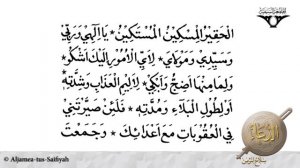 الْحَقِيْرُ الْمِسْكِيْنُ الْمُسْتَكِيْنُ * يَا اِلٰهِيْ وَرَبِّيْ
وَسَيِّدِيْ وَمَوْلَايَ * لِاَيِّ الْاُمُوْرِ اِلَيْكَ اَشْكُوْ *
وَلِمَا مِنْهَا اَضِجُّ وَاَبْكِيْ * لِاَلِيْمِ الْعَذَابِ وَشِدَّتِهِ *
اَوْ لِطُوْلِ الْبَلَاءِ وَمُدَّتِهِ * فَلَئِنْ صَيَّرْتَنِيْ
فِي الْعُقُوْبَاتِ مَعَ اَعْدَائِكَ * وَجَمَعْتَ
© Aljamea-tus-Saifiyah